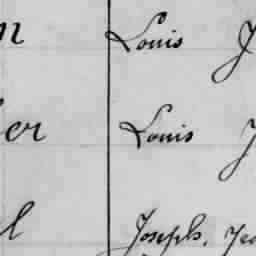 n Louis J
er Louis J
l Joseph, Jea